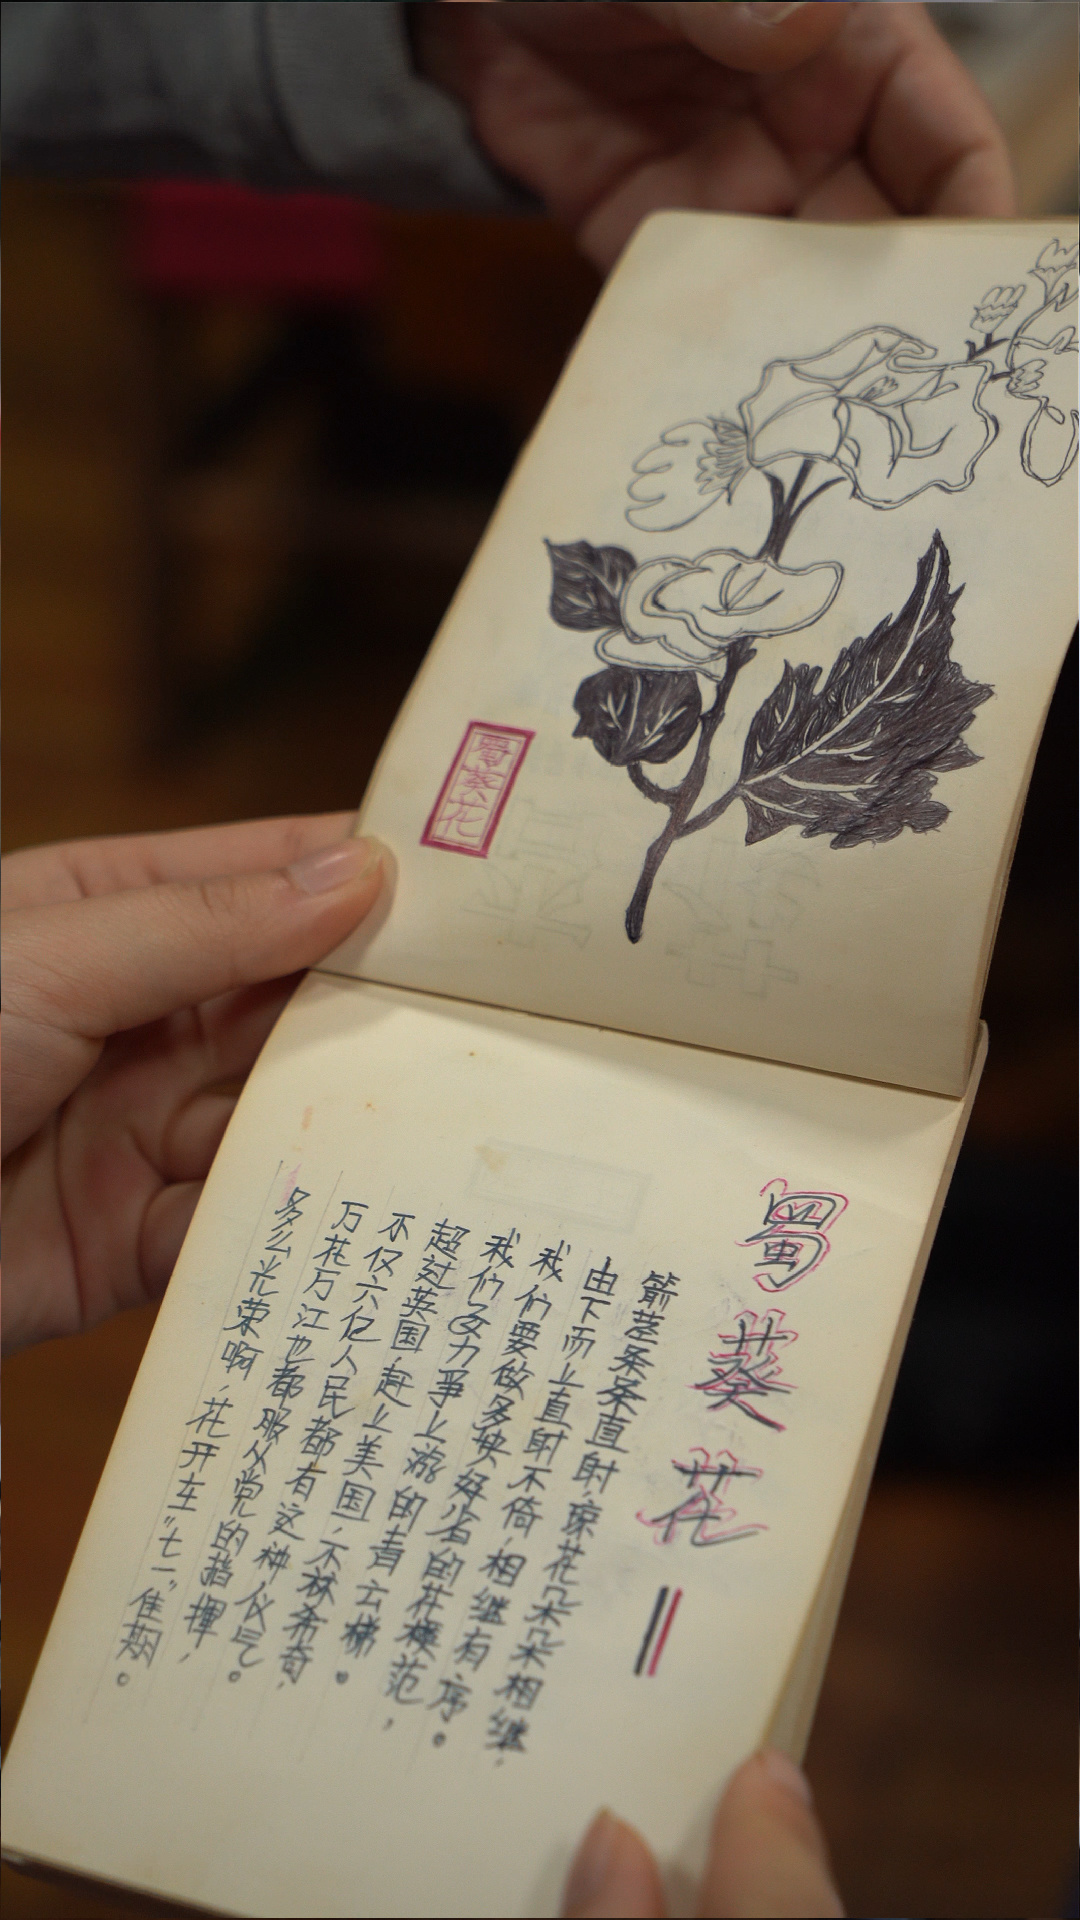 蜀葵花
蜀葵花
箭茎条条直射，琼花朵朵相继，
由下而上直射不倚，相继有序。
我们要做多快好省的花模范，
我们要力争上游的青云梯。
超过英国，赶上美国，不稀奇，
不仅六亿人民都有这种
万花万江也都服从党的指挥，
多么光荣啊，花开在“七一”佳期。